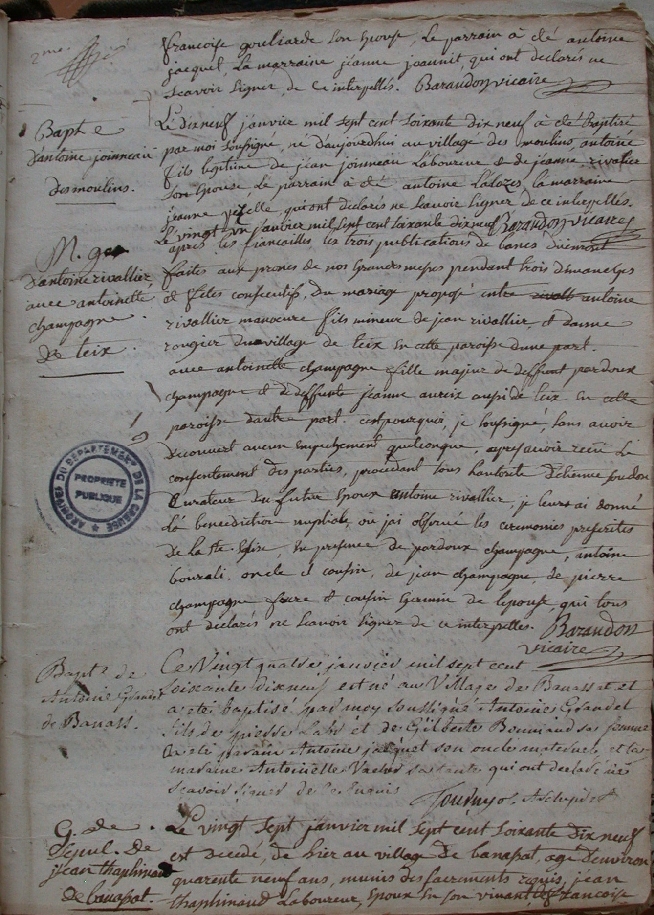 2me.
francoise gouliarde son epouse, Le parrain a été antoine
jacquet, La marraine jeanne jouannit, qui ont declarés ne
scavoir signer, de ce interpellés. Barandon vicaire
Bapt e
d'antoine joinneau
des moulins.
Le dix neuf janvier mil sept cent soixante dix neuf à été Baptisé
par moi soussigné, né d'aujourdhui au village des moulins, antoine
fils legitime de jean joinneau Laboureur & de jeanne rivalier
son Epouse, Le parrain à été antoine Lalozes, la marraine
jeanne qui ont declarés ne scavoir signer de ce interpellés.
M. ge
d'antoine rivallier
avec antoinette
champagne
de teix.
Le vingt un janvier mil sept cent soixante dix neuf Barandon vicaire
apres les fiancailles, les trois publications de bancs duëment
faites aux prones de nos Grandes messes pendant trois dimanches
& fêtes consecutifs, du mariage proposé entre antoine
rivallier manœuvre fils mineur de jean rivallier, et d'anne
rougier du village de teix En cette paroisse d'une part.
avec antoinette champagne fille majeur de deffunt pardoux
champagne & de deffunte jeanne aureix aussi de teix En cette
paroisse d'autre part. c'est pourquoi, je soussigné, sans avoir
decouvert aucun empechement quelconque, apres avoir recu Le
consentement des parties, procedant sous l'autorité d'Etienne
Curateur du futur Epoux antoine rivallier, je leurs ai donné
La benediction nuptiale, où j'ai observé les ceremonies prescrites
de la Ste. Eglise, En presence de pardoux champagne, antoine
bourali, oncle & cousin, de jean champagne, de pierre
champagne frere & cousin Germain de l'epouse, qui tous
ont declarés ne scavoir signer de ce interpellés. Barandon
vicaire
ARCHIVES DU DEPARTEMENT DE LA CREUSE
PROPRIETE
PUBLIQUE
Bapt. de
Antoine
de Banass.
Ce Vingt quatre janvier mil sept cent
soixante dixneuf est né au Village de Banassat et
a été baptisé par moy soussigné Antoine
fils de pierre Labr et de Gilberte sa femme
a été parain Antoine jacquet son oncle maternel et la
maraine Antoinette sa tante qui ont declaré ne
scavoir signer de ce Enquis
G. de
Sepul. de
jean thaphinaud
de banassat.
Le vingt sept janvier mil sept cent soixante dix neuf
est decedé, de hier au village de banassat, agé d'environ
quarente neuf ans, munis des sacrements requis, jean
thaphinaud Laboureur, Epoux En son vivant de francoise